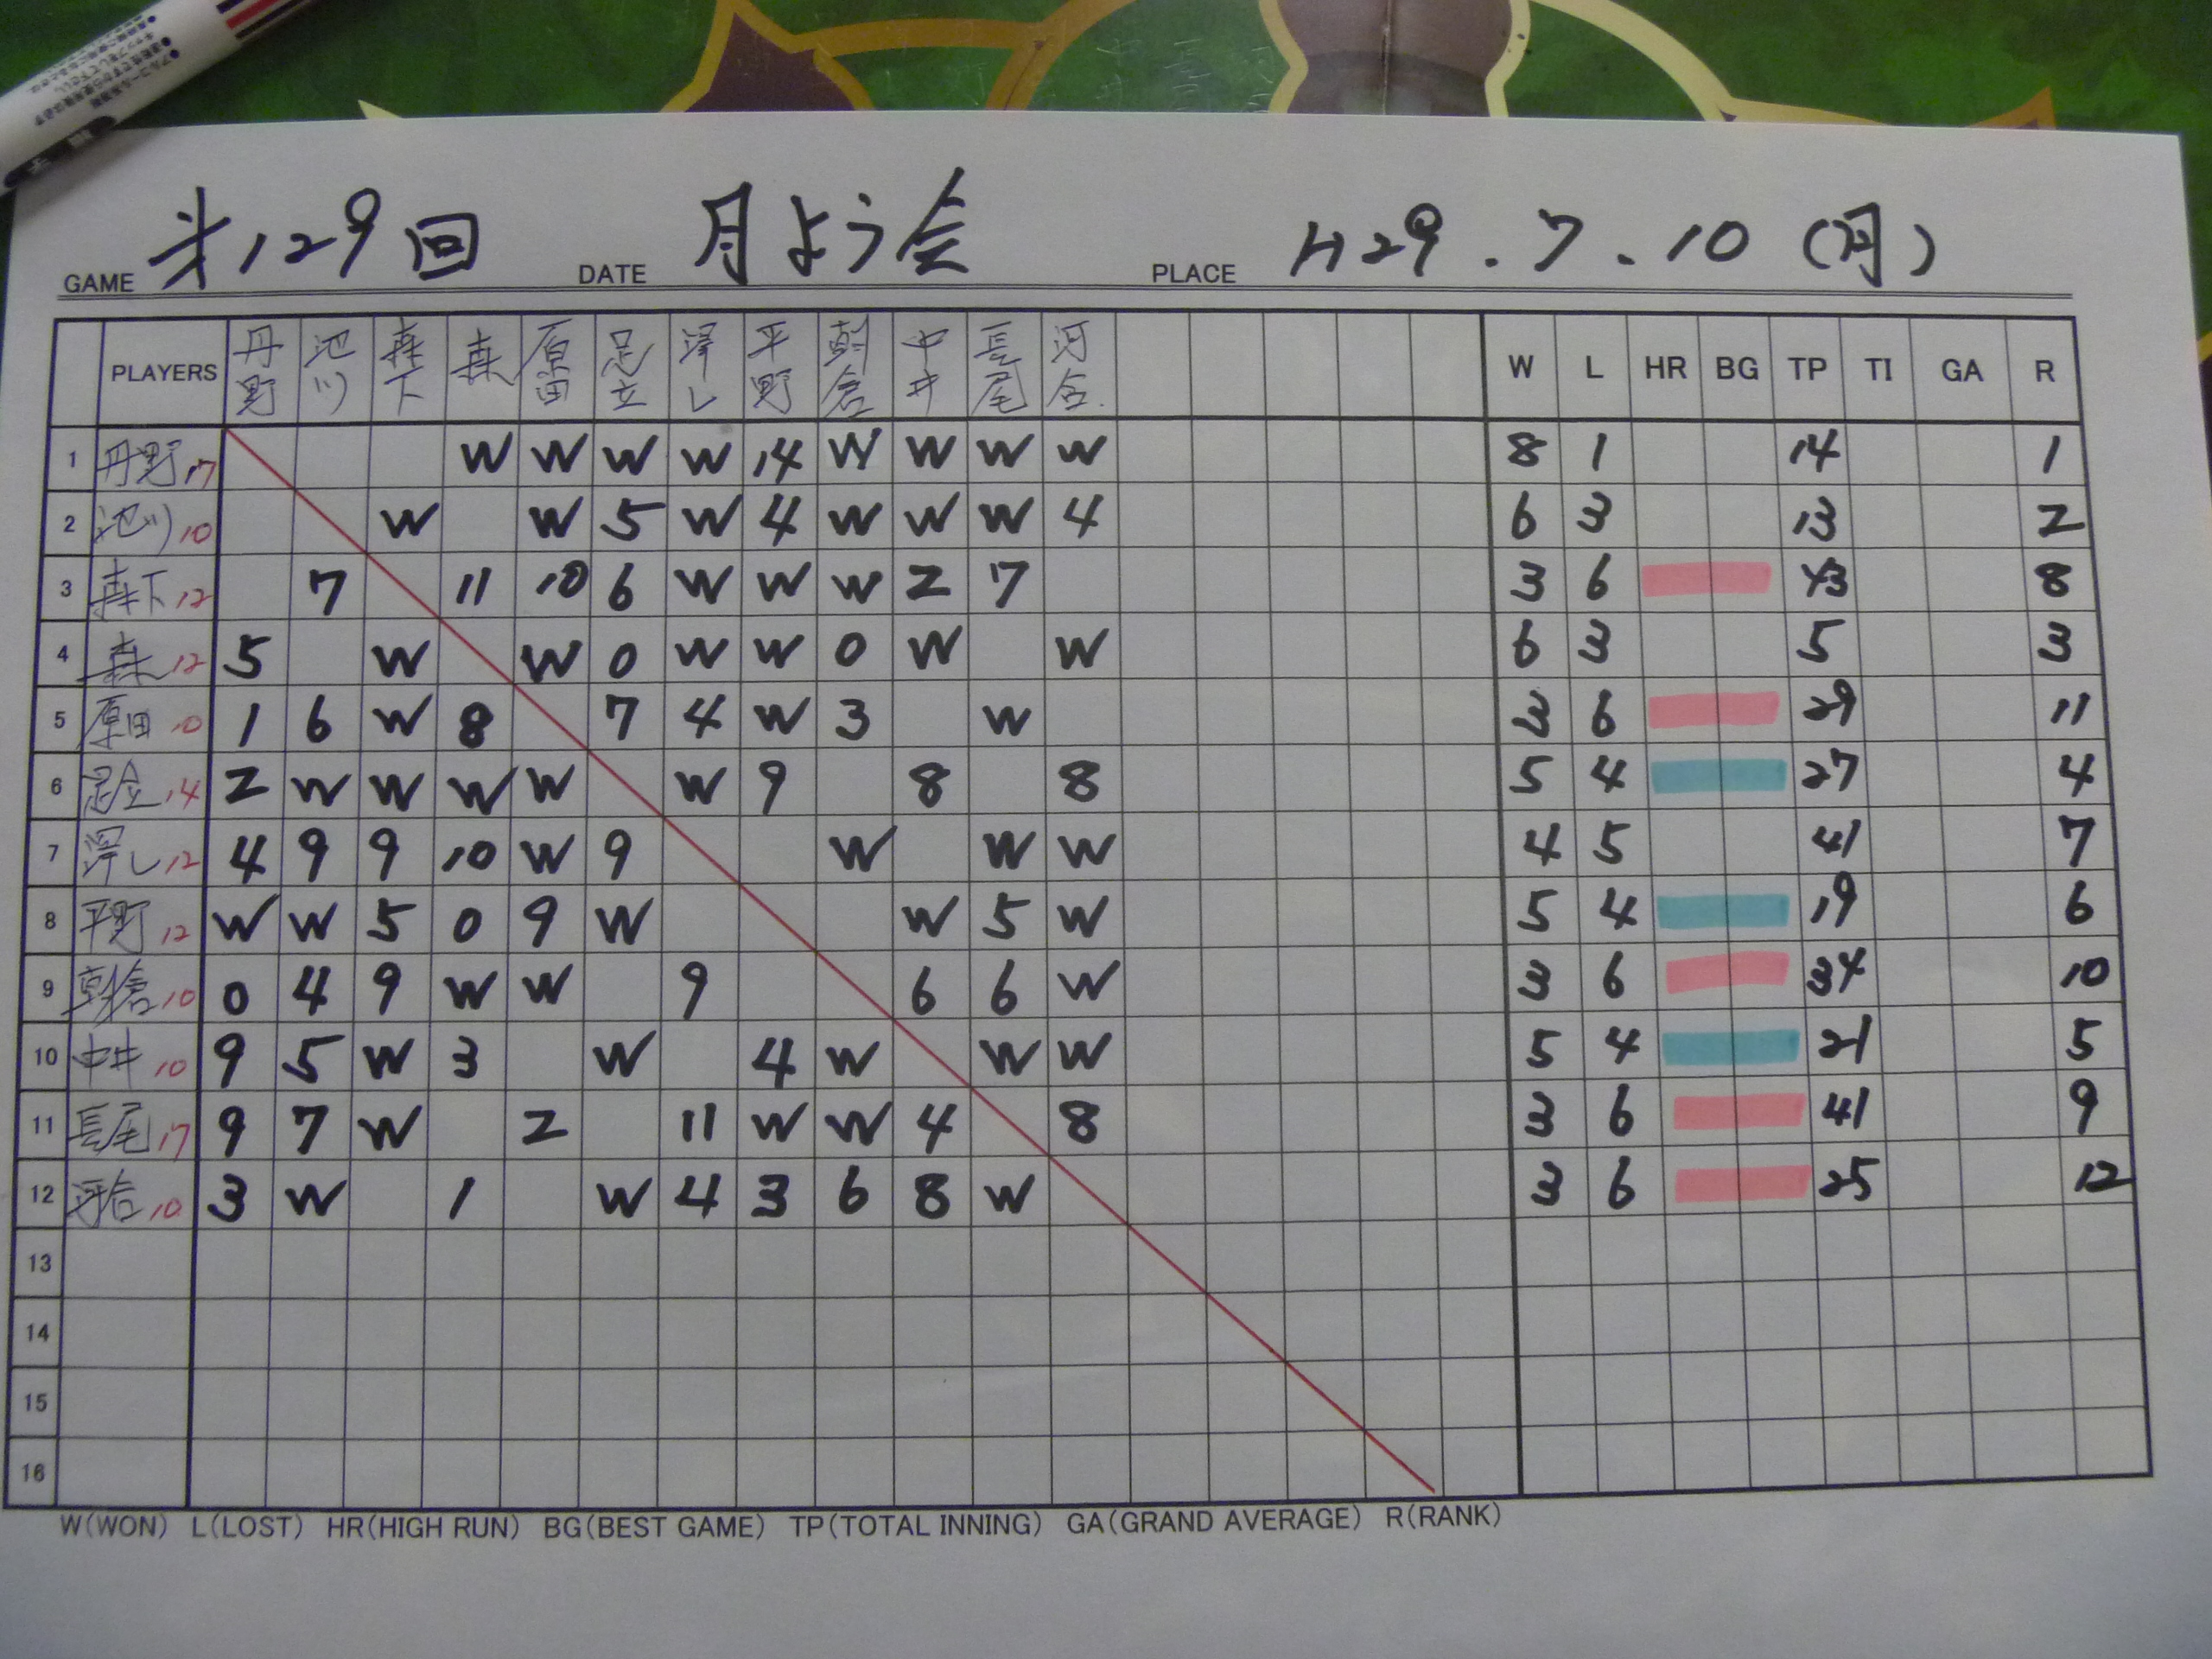 GAME 第129回 DATE 月よう会 PLACE H29.7.10(月)
PLAYERS 丹野 池川 森下 森 原田 足立 澤し 平野 朝倉 中井 長尾 河合 W L HR BG TP TI GA R
1 丹野 17 W W W W 14 W W W W 8 1 14 1
2 池川 10 W W 5 W 4 W W W 4 6 3 13 2
3 森下 12 7 11 10 6 W W W 2 7 3 6 43 8
4 森 12 5 W W 0 W W 0 W W 6 3 5 3
5 原田 10 1 6 W 8 7 4 W 3 W 3 6 29 11
6 足立 14 2 W W W W W 9 8 8 5 4 27 4
7 澤し 12 4 9 9 10 W 9 W W W 4 5 41 7
8 平野 12 W W 5 0 9 W W 5 W 5 4 19 6
9 朝倉 10 0 4 9 W W 9 6 6 W 3 6 34 10
10 中井 10 9 5 W 3 W 4 W W W 5 4 21 5
11 長尾 17 9 7 W 2 11 W W 4 8 3 6 41 9
12 河合 10 3 W 1 W 4 3 6 8 W 3 6 25 12
13
14
15
16
W(WON) L(LOST) HR(HIGH RUN) BG(BEST GAME) TP(TOTAL INNING) GA(GRAND AVERAGE) R(RANK)